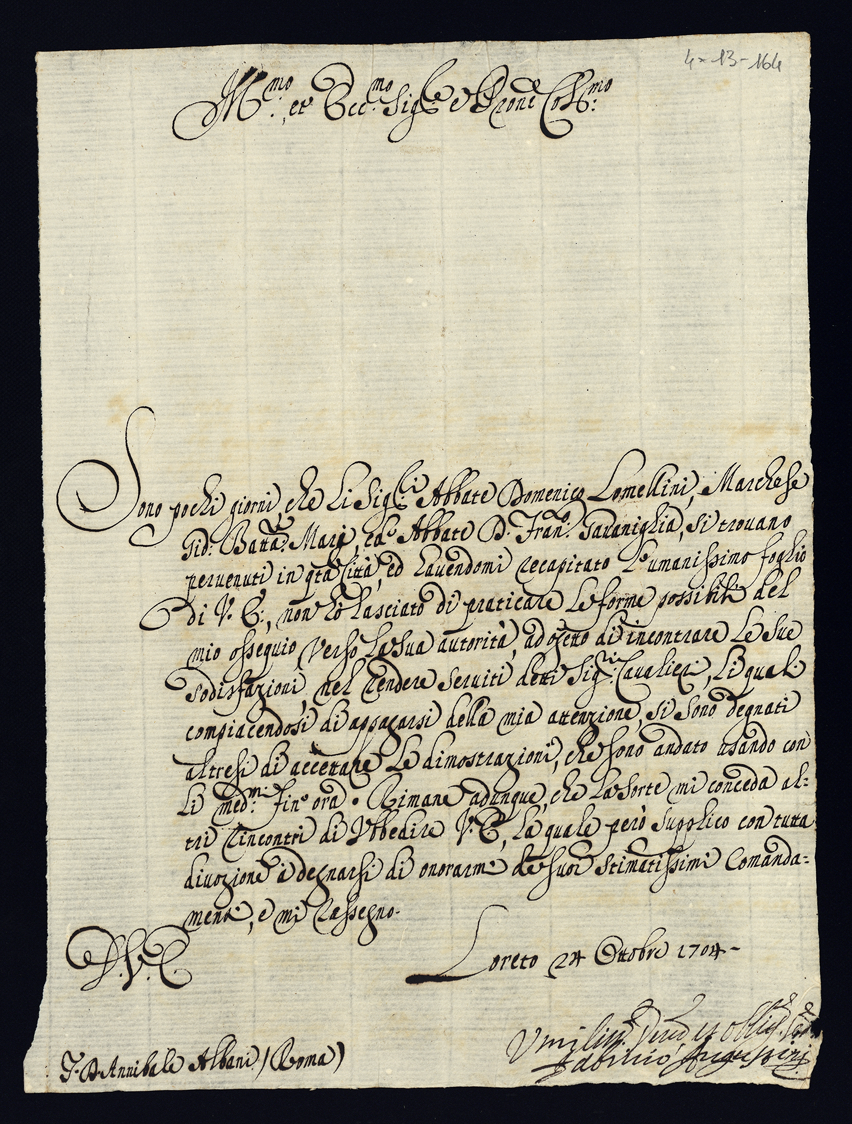 4-13-164
Ill:mo et Ecc:mo Sig:re e Prone Coll:mo
Sono pochi giorni, che Li Sig:ri Abbate Domenico Lomellini, Marchese
Gio: Batta: Marj, ed Abbate D. Fran:co Gavaniglia, si trovano
pervenuti in qta Città, ed havendomi recapitato L'umanissimo foglio
di V. E:, non hò lasciato di praticare Le forme possibili del
mio ossequio verso La Sua autorità, ad ogetto di incontrare Le Sue
sodisfazioni, nel rendere serviti detti Sig:ri Cavalieri, Li quali
compiacendosi di appagarsi della mia attenzione, si sono degnati
altresi di accettare Le dimostrazioni, che sono andato usando con
Li med:mi fin' ora. Rimane adunque, che La Sorte mi conceda al=
tri rincontri di Ubbedire V. E., La quale però supplico con tutta
divozione à degnarsi di onorarmi de suoi stimatissimi Comanda=
menti, e mi rassegno.
D. V. E.
Loreto 24 Ottobre 1704
Umiliss:o Devo et Obligo Ser:e
Fabritio
S. D. Annibale Albani / (Roma)